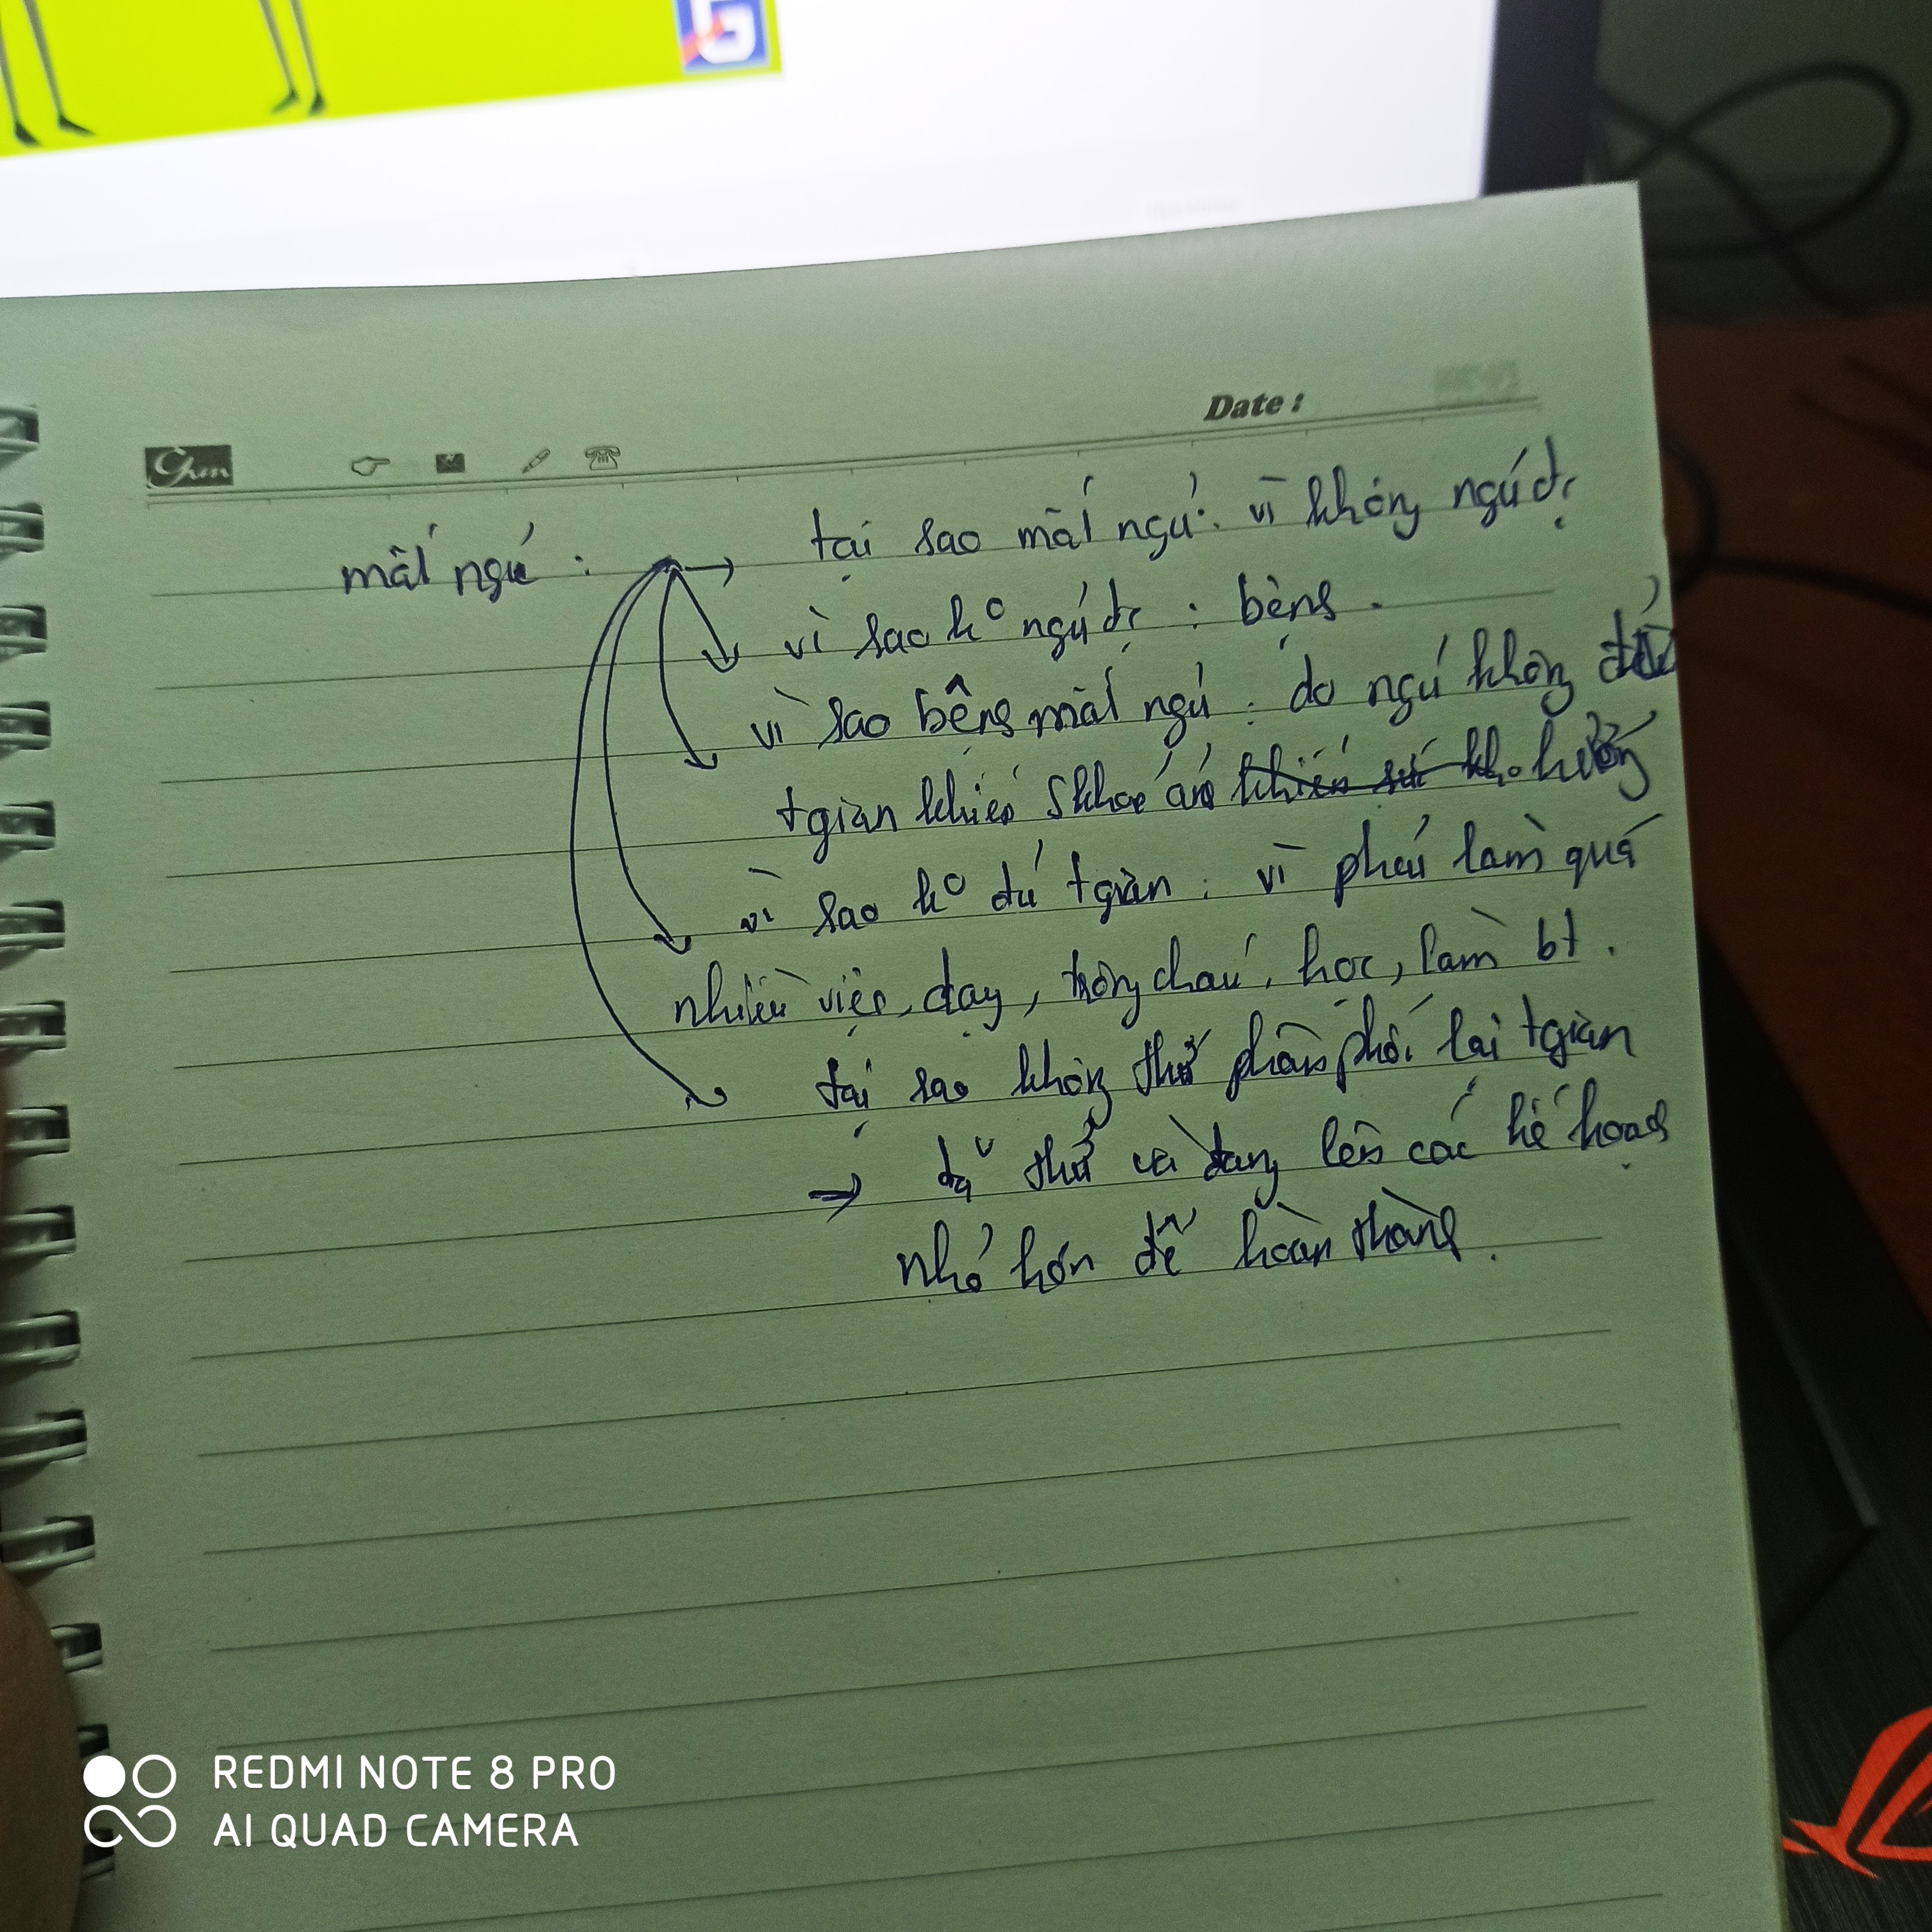 G
Date :
Gren
mất ngủ :
tại sao mất ngủ : vì không ngủ đc
vì sao ko ngủ đc : bệnh .
vì sao bệnh mất ngủ : do ngủ không đủ
tgian khiến skhoẻ ảnh hưởng
vì sao ko đủ tgian : vì phải làm quá
nhiều việc, dạy, trông cháu, học, làm bt .
tại sao không thử phân phối lại tgian
→ đã thử và đang lên các kế hoạch
nhỏ hơn để hoàn thành .
REDMI NOTE 8 PRO
AI QUAD CAMERA